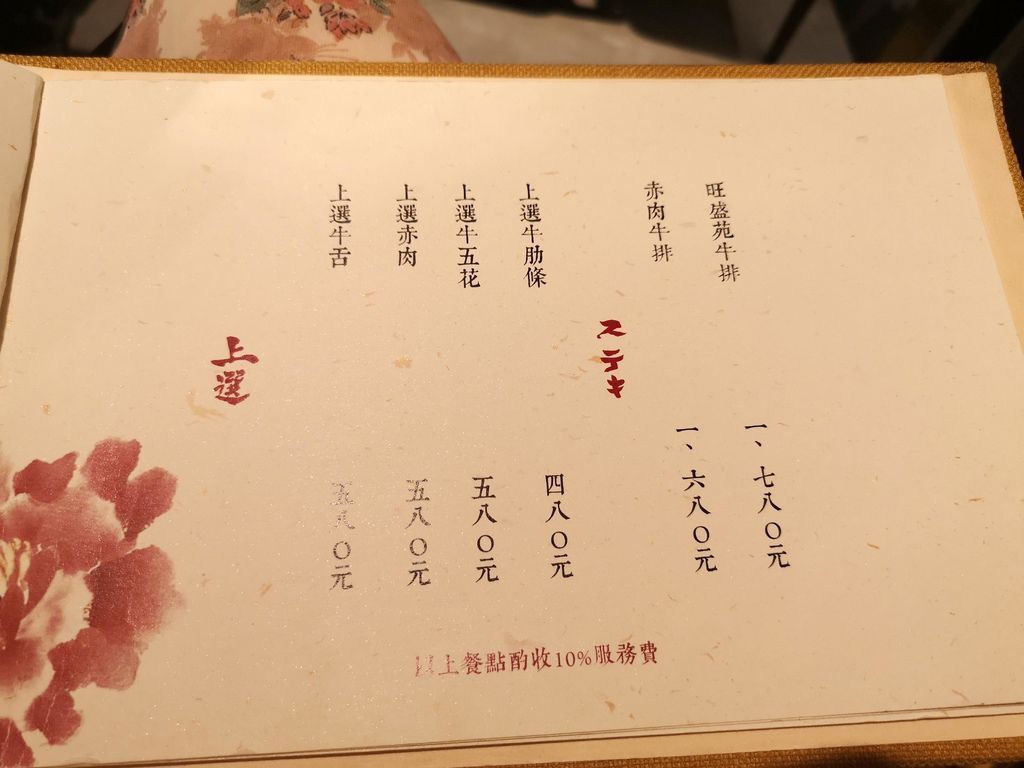 旺盛苑牛排
一、七八〇元
赤肉牛排
一、六八〇元
ステキ
上選牛肋條
四八〇元
上選牛五花
五八〇元
上選赤肉
五八〇元
上選牛舌
五八〇元
上選
以上餐點酌收10%服務費